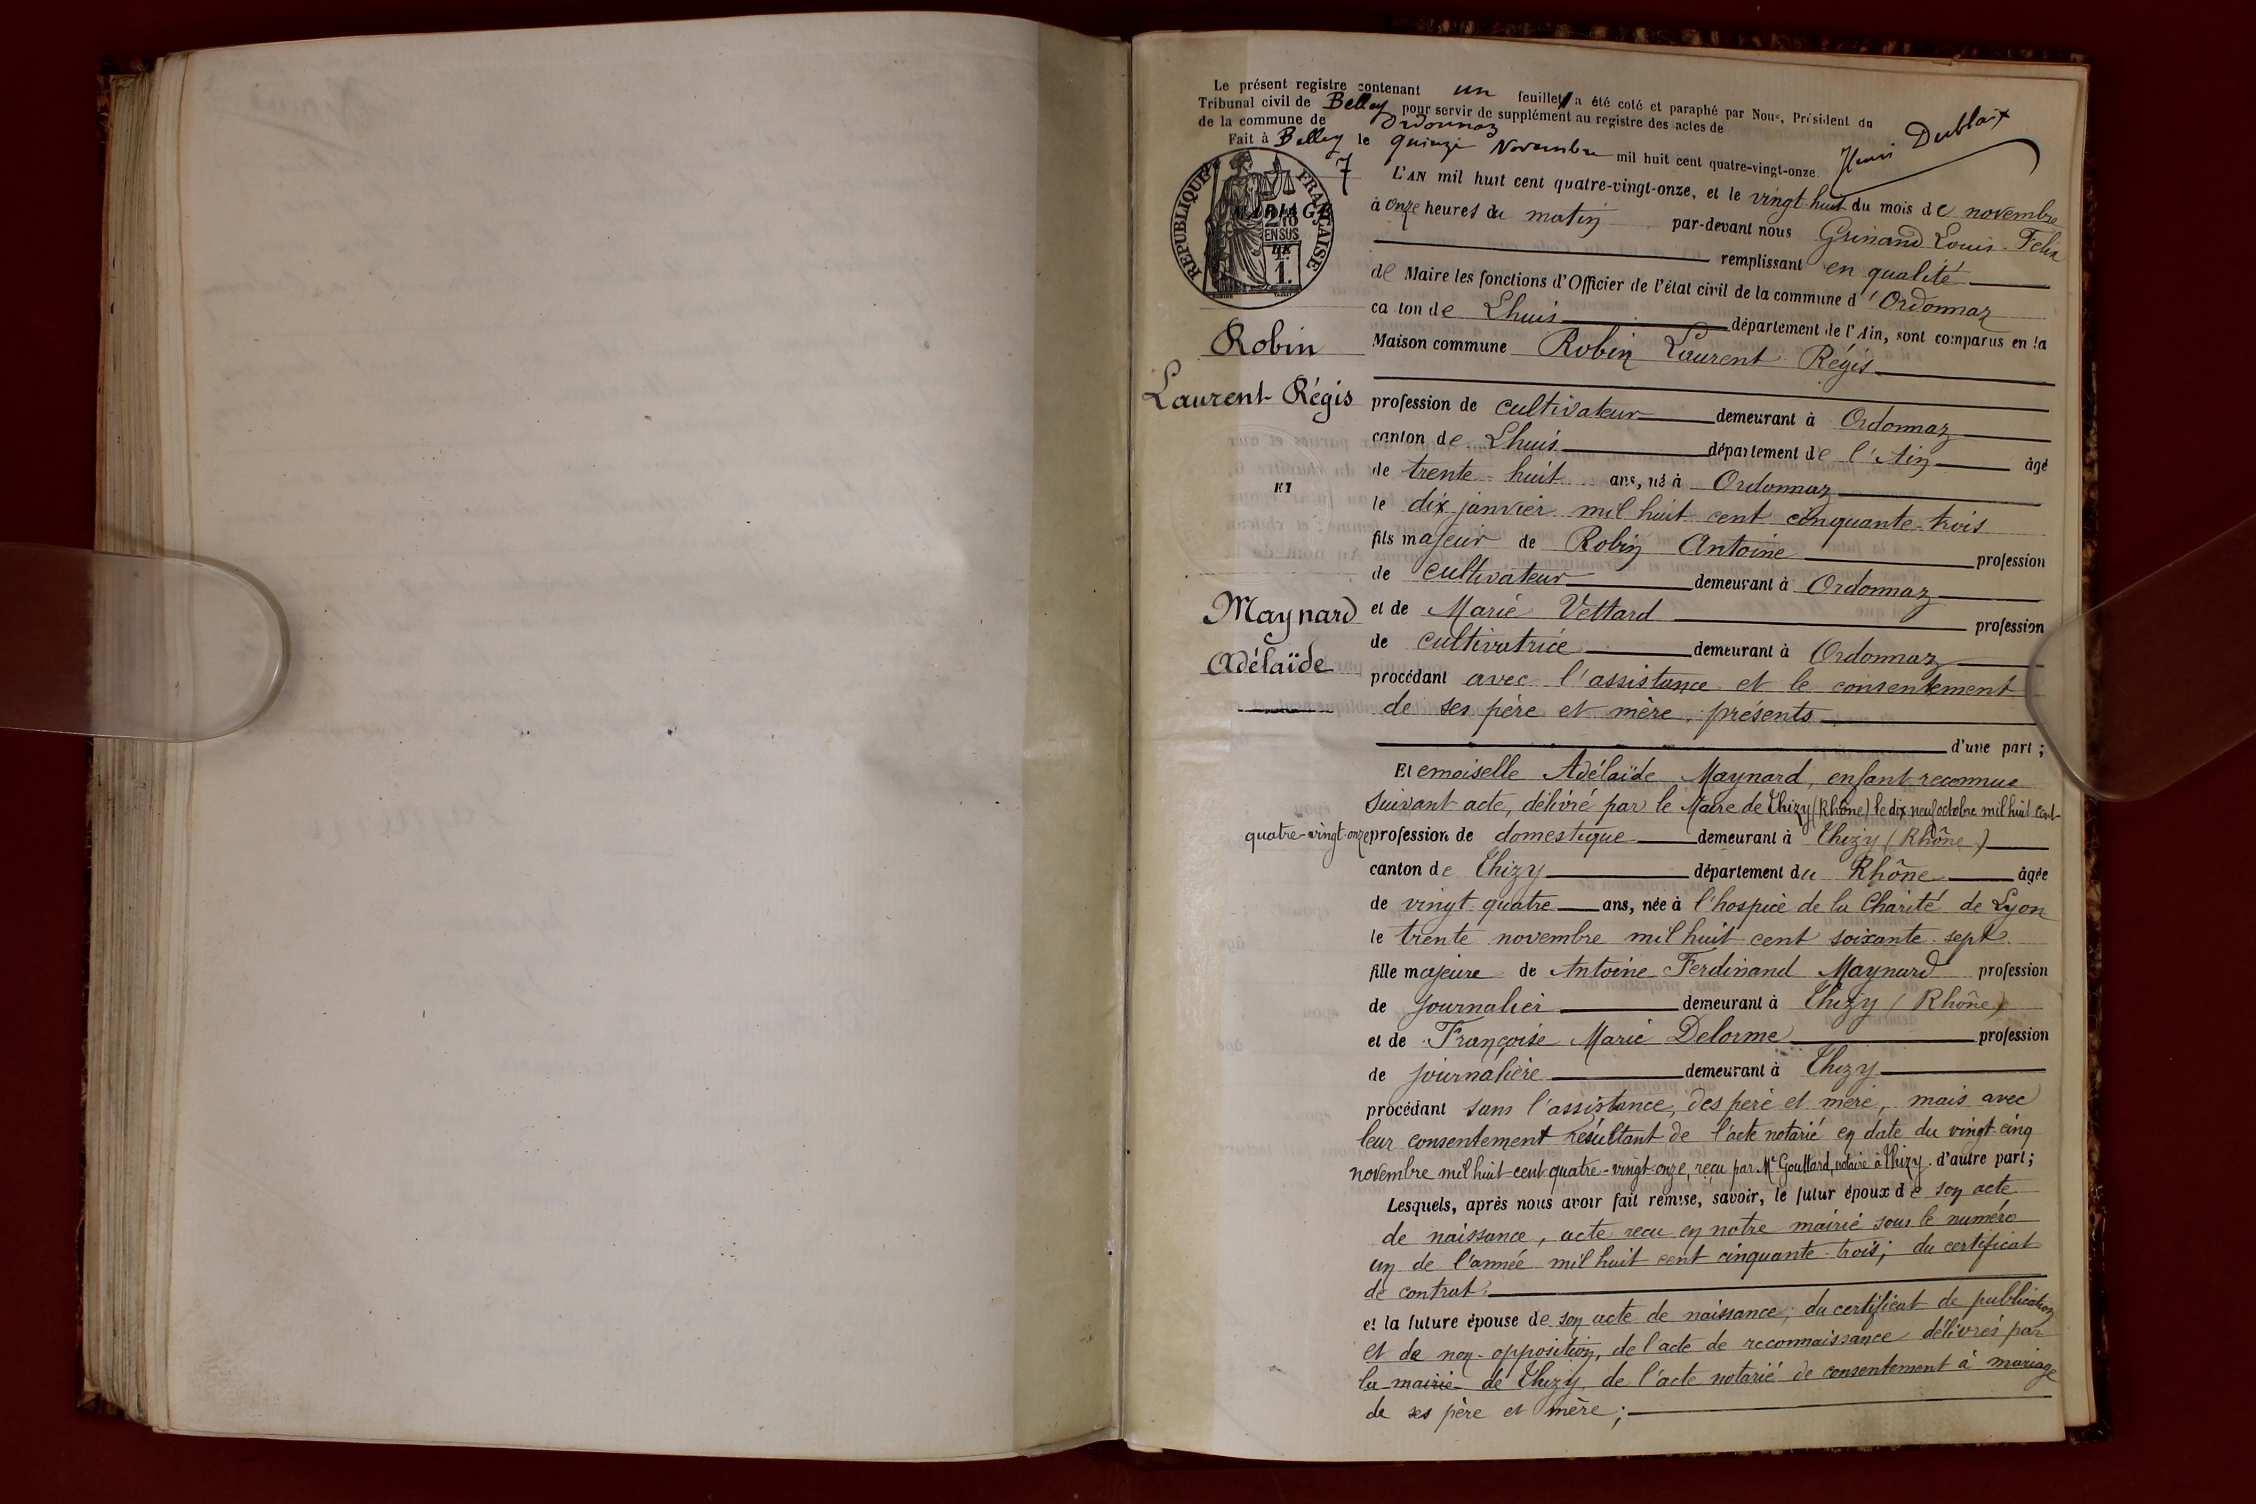 Le présent registre contenant un feuillet a été coté et paraphé par Nous, Président du
Tribunal civil de Belley pour servir de supplément au registre des actes de
de la commune de Ordonnaz
Fait à Belley le quinze Novembre mil huit cent quatre-vingt-onze.
7
RÉPUBLIQUE FRANÇAISE
MARIAGE
L'AN mil huit cent quatre-vingt-onze, et le vingt-huit du mois de novembre
à onze heures du matin par-devant nous Louis Felix
remplissant en qualité
de Maire les fonctions d'Officier de l'état civil de la commune d'Ordonnaz
canton de Lhuis département de l'Ain, sont comparus en la
Robin
Maison commune Robin Laurent Régis
Laurent-Régis
profession de cultivateur demeurant à Ordonnaz
canton de Lhuis département de l'Ain âgé
de trente-huit ans, né à Ordonnaz
ET
le dix janvier mil huit cent cinquante-trois
fils majeur de Robin Antoine profession
de cultivateur demeurant à Ordonnaz
Maynard
et de Marie Vettard profession
de cultivatrice demeurant à Ordonnaz
Adélaïde
procédant avec l'assistance et le consentement
de ses père et mère, présents
d'une part ;
Et emoiselle Adélaïde Maynard, enfant reconnue
suivant acte, délivré par le Maire de Thizy (Rhône) le dix neuf octobre mil huit cent-
quatre-vingt-onze profession de domestique demeurant à Thizy (Rhône)
canton de Thizy département du Rhône âgée
de vingt quatre ans, née à l'hospice de la Charité de Lyon
le trente novembre mil huit cent soixante sept
fille majeure de Antoine Ferdinand Maynard profession
de journalier demeurant à Thizy (Rhône)
et de Françoise Marie Delorme profession
de journalière demeurant à Thizy
procédant sans l'assistance, des père et mère, mais avec
leur consentement résultant de l'acte notarié en date du vingt cinq
novembre mil huit cent quatre-vingt-onze, reçu par Me Gouttard, notaire à Thizy. d'autre part ;
Lesquels, après nous avoir fait remise, savoir, le futur époux de son acte
de naissance, acte reçu en notre mairie sous le numéro
un de l'année mil huit cent cinquante-trois ; du certificat
de contrat.
et la future épouse de son acte de naissance, du certificat de publication
et de non-opposition, de l'acte de reconnaissance délivrés par
la mairie de Thizy, de l'acte notarié de consentement à mariage
de ses père et mère ;